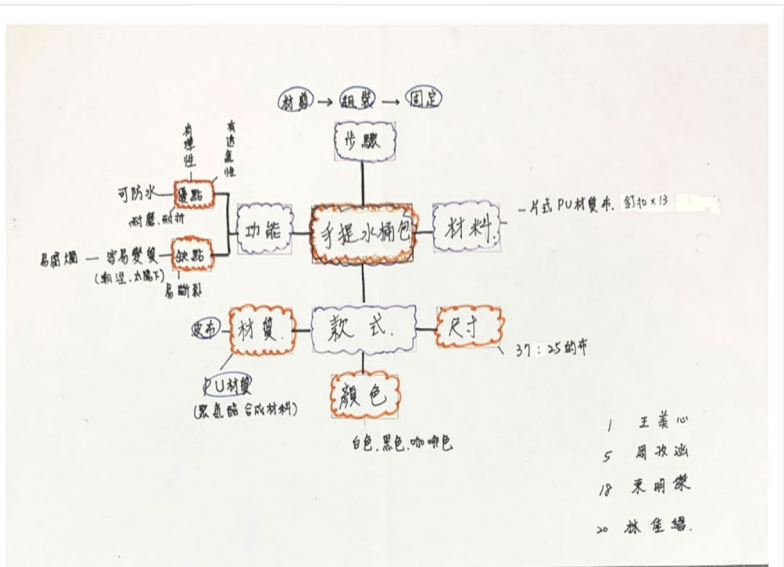 材剪 → 組裝 → 固定
步驟
有彈性
有透氣性
可防水
優點
耐磨.耐折
功能
手提水桶包
材料.
一片式 PU材質布. 釘扣×13
易腐爛
容易變質
缺點
(潮溼.太陽下)
易斷裂
皮布
材質.
款式.
尺寸
37:25的布
PU材質
(聚氨酯合成材料)
顏色
白色.黑色.咖啡色
1 王美心
5 周孜涵
18 明傑
20 林佳